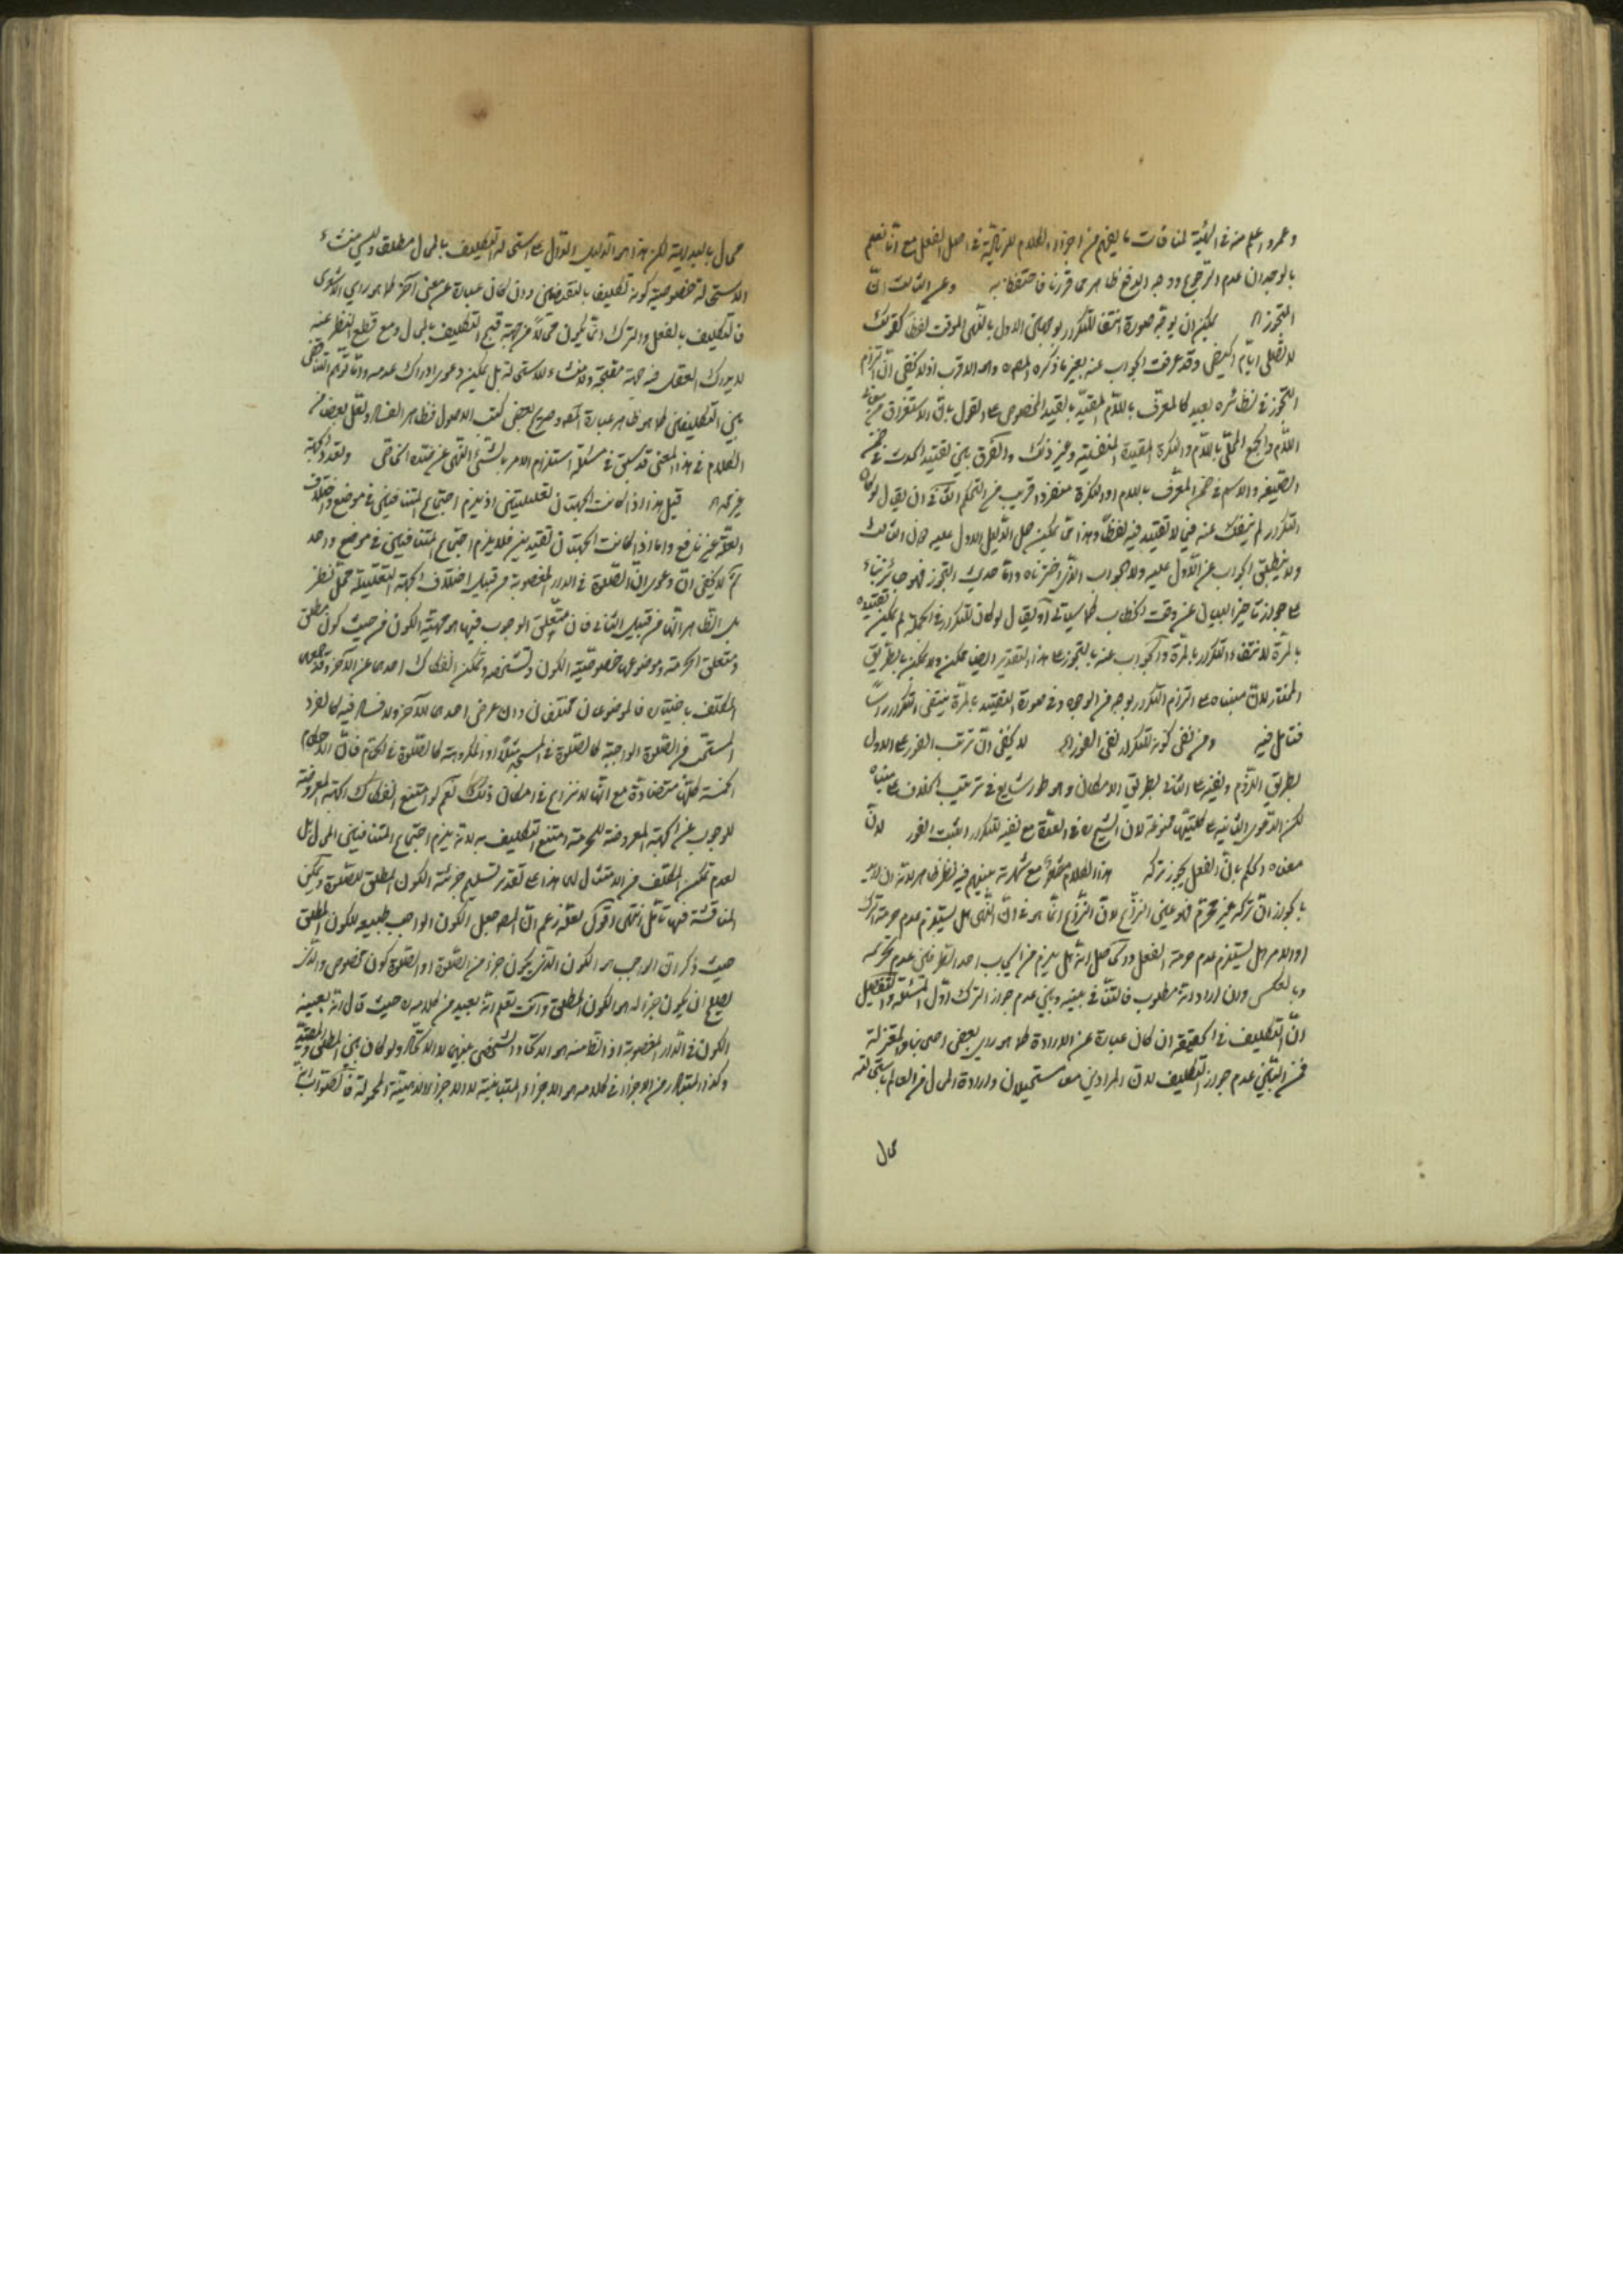 وعمرو اعلم منه في الهيئة لمنافات ما يفهم من اجزاء الكلام للزيادة في اصل الفعل مع انا نعلم
بالوجدان عدم الترجيح ووجه الدفع ظاهر مما قررنا فاحتفظ به وعن الثالث ان
التجوز اه يمكن ان يوجه صورة انتفاء التكرار بوجهين الاول بالنهي الموقت لفظا كقولك
لا تصلي ايام الحيض وقد عرفت الجواب عنه بغير ما ذكره المص ره وهو الاقرب اذ لا يخفى ان التزام
التجوز في نظائره بعيد كالمعرف باللام المقيد بالقيد المخصوص على القول بان الاستغراق
اللام والجمع المحلى باللام والنكرة المقيدة المنفية وغير ذلك والفرق بين تقييد الحدث في ضمن
الصيغة والاسم في ضمن المعرف باللام او النكرة منفردا قريب من التحكم الثاني ان يقال لو كان
التكرار لم ينفك عنه في لا تقييد فيه لفظا وهذا مما يمكن حمل الدليل الاول عليه دون الثالث
ولا ينطبق الجواب عن الاول عليه ولا الجواب الذي اخترناه واما حديث التجوز فهو جائز بناء
على جواز تاخير البيان عن وقت الخطاب كما سياتي او يقال لو كان للتكرار في الجملة لم يمكن تقييده
بالمرة لانتفاء التكرار بالمرة والجواب عنه بالتجوز على هذا التقدير ايضا ممكن ولا يمكن بالطريق
المختار لان مبناه على التزام التكرار بوجه من الوجوه وفي صورة التقييد بالمرة ينتفي التكرار راسا
فتامل فيه ومن نفى كونه للتكرار نفى الفور اه لا يخفى ان ترتب الفور على الاول
بطريق اللزوم ونفيه على الثاني بطريق الامكان وهو طور شايع في ترتيب الخلاف على مبناه
لكن الدعوى الثانية على كليتها ممنوعة لان الشيخ ره في العدة مع نفيه للتكرار اثبت الفور لان
معناه الحكم بان الفعل يجوز تركه هذا الكلام مع شهرته بينهم فيه نظر ظاهر لانه ان اريد
بالجواز ان تركه غير محرم فهو عين النزاع لان النزاع انما هو في ان النهي هل يستلزم عدم حرمة الترك
او الامر هل يستلزم عدم حرمة الفعل والحاصل انه هل يلزم من ايجاب احد الطرفين عدم تحريمه
وبالعكس وان اراد انه مطلوب فالتنافي بينه وبين عدم جواز الترك اول المسئلة والتفصيل
ان التكليف في الحقيقة ان كان عبارة عن الارادة كما هو راي بعض اصحابنا والمعتزلة
فمن البين عدم جواز التكليف لان المرادين معا مستحيلان وارادة المحال من العالم باستحالته
محال
محال بالبديهة لكن هذا هو الدليل الدال على استحالة التكليف بالمحال مطلقا وليس منشاء
الاستحالة خصوصية كونه تكليفا بالنقيضين وان كان عبارة عن معنى آخر كما هو راي الاشعري
فالتكليف بالفعل والترك انما يكون محالا من جهة قبح التكليف بالمحال ومع قطع النظر عنه
لا يدرك العقل فيه جهة مقبحة ولا منشاء للاستحالة بل يمكن دعوى ادراك عدمه واما توهم التناقض
بين التكليفين كما هو ظاهر عبارة المص وصريح بعض كتب الاصول فظاهر الفساد ولعل بعض من
الكلام في هذا المعنى قد سبق في مسئلة استلزام الامر بالشئ النهي عن ضده الخاص وتعدد الجهة
غير مجد اه قيل هذا اذا كانت الجهتان تعليليتين اذ يلزم اجتماع المتنافيين في موضع واختلاف
العلة غير نافع واما اذا كانت الجهتان تقييديتين فلا يلزم اجتماع المتنافيين في موضع واحد
ثم لا يخفى ان دعوى ان الصلوة في الدار المغصوبة من قبيل اختلاف الجهة التعليلية محل نظر
بل الظاهر انها من قبيل الثاني فان متعلق الوجوب فيها هو مهية الكون من حيث كون مطلق
ومتعلق الحرمة وموضوعها خصوصية الكون وتشخصه ويمكن انفكاك احدهما عن الآخر وقد جمعهما
المكلف باختياره فالموضوعان مختلفان وان عرض احدهما للآخر ولا فساد فيه كالفرد
المستحب من الصلوة الواجبة كالصلوة في المسجد مثلا او المكروهة كالصلوة في الحمام فان الاحكام
الخمسة كلها متضادة مع انها لا نزاع في امكان ذلك نعم لو امتنع انفكاك الجهة المعروضة
للوجوب عن الجهة المعروضة للحرمة امتنع التكليف به لانه يلزم اجتماع المتنافيين المحال بل
لعدم تمكن المكلف من الامتثال لهما هذا على تقدير تسليم جزئية الكون المطلق للصلوة ويمكن
المناقشة فيها تامل انتهى اقول لعله زعم ان المص جعل الكون الواجب طبيعة الكون المطلق
حيث ذكر ان الواجب هو الكون الذي يكون جزء من الصلوة او الصلوة كون مخصوص والذي
يصلح ان يكون جزءا له هو الكون المطلق وانت تعلم انه بعيد من كلامه ره حيث قال انه بعينه
الكون في الدار المغصوبة اذ الظاهر منه هو الاتحاد الشخصي بينهما لا الاتحاد ولو كان بين المطلق والمقيد
وكذا المتبادر من الاجزاء في كلامه هو الاجزاء المتباينة لا الاجزاء الذهنية المحمولة فالصواب